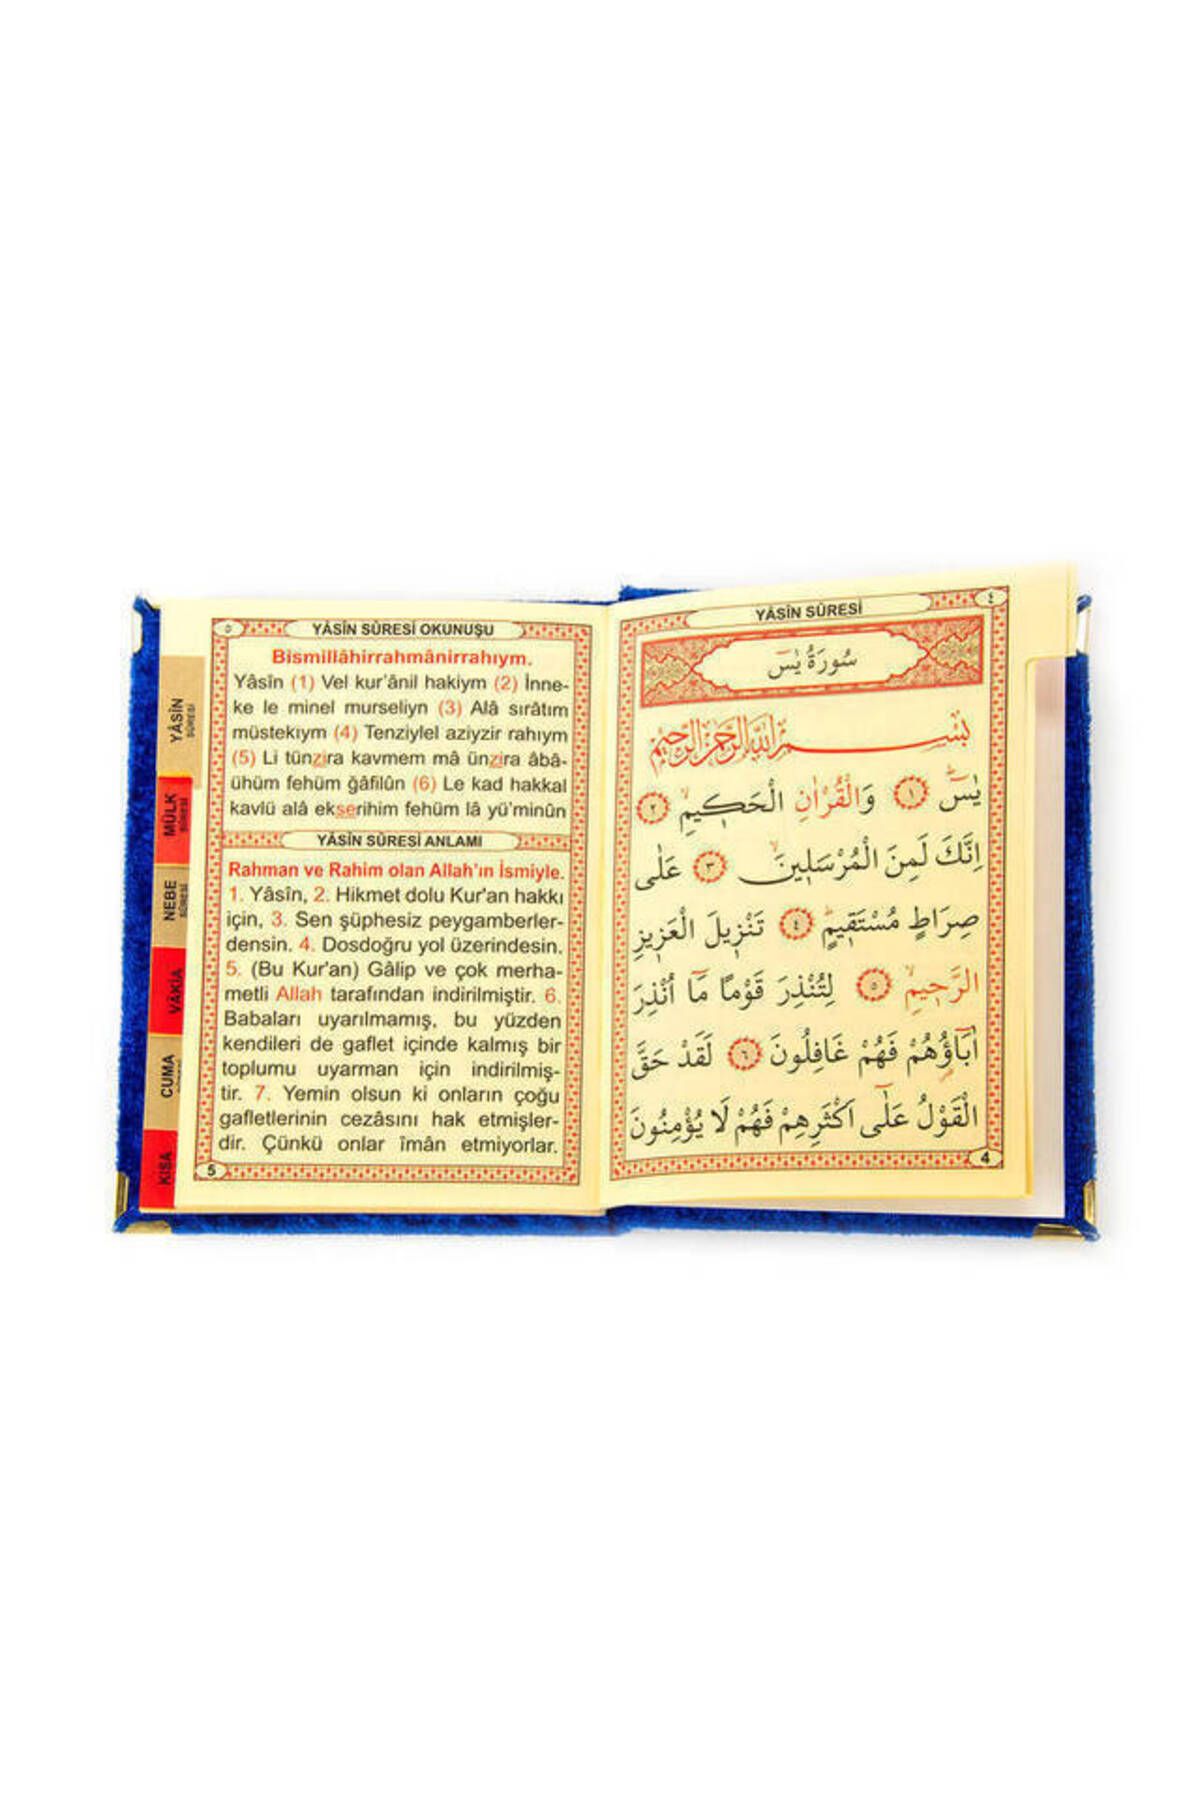 ٤
YÂSÎN SÛRESİ
سُورَةُ يٰسٓ
بِسْمِ اللّٰهِ الرَّحْمٰنِ الرَّحِيمِ
يٰسٓ ﴿١﴾ وَالْقُرْاٰنِ الْحَكٖيمِ ﴿٢﴾
اِنَّكَ لَمِنَ الْمُرْسَلٖينَ ﴿٣﴾ عَلٰى
صِرَاطٍ مُسْتَقٖيمٍ ﴿٤﴾ تَنْزٖيلَ الْعَزٖيزِ
الرَّحٖيمِ ﴿٥﴾ لِتُنْذِرَ قَوْمًا مَٓا اُنْذِرَ
اٰبَٓاؤُ۬هُمْ فَهُمْ غَافِلُونَ ﴿٦﴾ لَقَدْ حَقَّ
الْقَوْلُ عَلٰٓى اَكْثَرِهِمْ فَهُمْ لَا يُؤْمِنُونَ
4
٥
YÂSÎN SÛRESİ OKUNUŞU
Bismillâhirrahmânirrahıym.
Yâsîn (1) Vel kur'ânil hakiym (2) İnne-
ke le minel murseliyn (3) Alâ sırâtım
müstekıym (4) Tenziylel aziyzir rahıym
(5) Li tünzira kavmem mâ ünzira âbâ-
ühüm fehüm ğâfilûn (6) Le kad hakkal
kavlü alâ ekserihim fehüm lâ yü'minûn
YÂSÎN SÛRESİ ANLAMI
Rahman ve Rahim olan Allah'ın İsmiyle.
1. Yâsîn, 2. Hikmet dolu Kur'an hakkı
için, 3. Sen şüphesiz peygamberler-
densin. 4. Dosdoğru yol üzerindesin.
5. (Bu Kur'an) Gâlip ve çok merha-
metli Allah tarafından indirilmiştir. 6.
Babaları uyarılmamış, bu yüzden
kendileri de gaflet içinde kalmış bir
toplumu uyarman için indirilmiş-
tir. 7. Yemin olsun ki onların çoğu
gafletlerinin cezâsını hak etmişler-
dir. Çünkü onlar îmân etmiyorlar.
5
YÂSÎN
SÛRESİ
MÜLK
SÛRESİ
NEBE
SÛRESİ
VÂKIA
CUMA
KISA